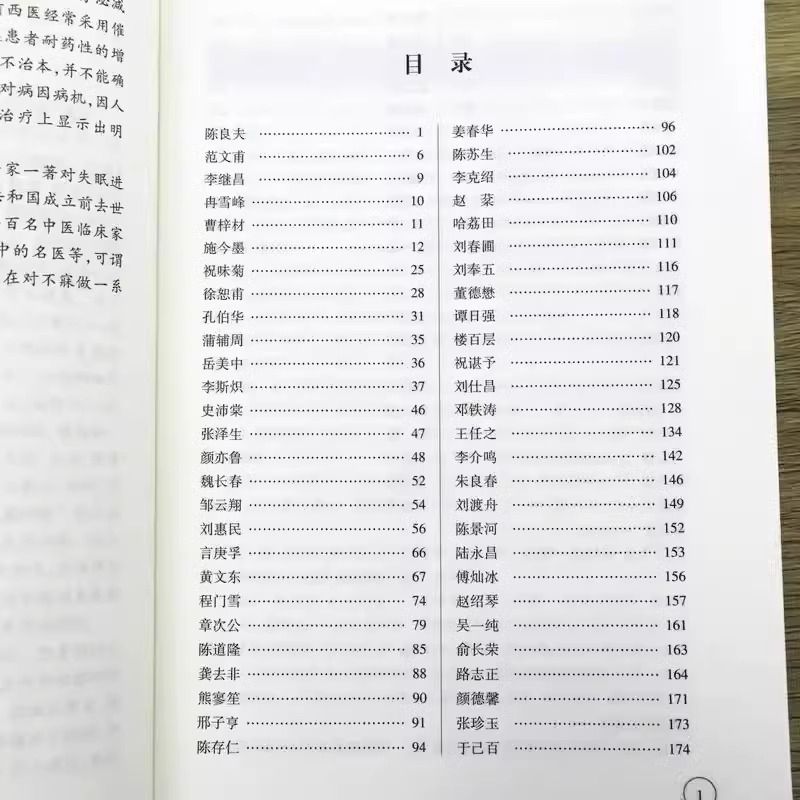 西医经常采用催
患者耐药性的增
不治本，并不能确
对病因病机，因人
治疗上显示出明
家一著对失眠进
和国成立前去世
百名中医临床家
中的名医等，可谓
在对不寐做一系
目 录
陈良夫 1
范文甫 6
李继昌 9
冉雪峰 10
曹梓材 11
施今墨 12
祝味菊 25
徐恕甫 28
孔伯华 31
蒲辅周 35
岳美中 36
李斯炽 37
史沛棠 46
张泽生 47
颜亦鲁 48
魏长春 52
邹云翔 54
刘惠民 56
言庚孚 66
黄文东 67
程门雪 74
章次公 79
陈道隆 85
龚去非 88
熊寥笙 90
邢子亨 91
陈存仁 94
姜春华 96
陈苏生 102
李克绍 104
赵 棻 106
哈荔田 110
刘春圃 111
刘奉五 116
董德懋 117
谭日强 118
楼百层 120
祝谌予 121
刘仕昌 125
邓铁涛 128
王任之 134
李介鸣 142
朱良春 146
刘渡舟 149
陈景河 152
陆永昌 153
傅灿冰 156
赵绍琴 157
吴一纯 161
俞长荣 163
路志正 164
颜德馨 171
张珍玉 173
于己百 174
1